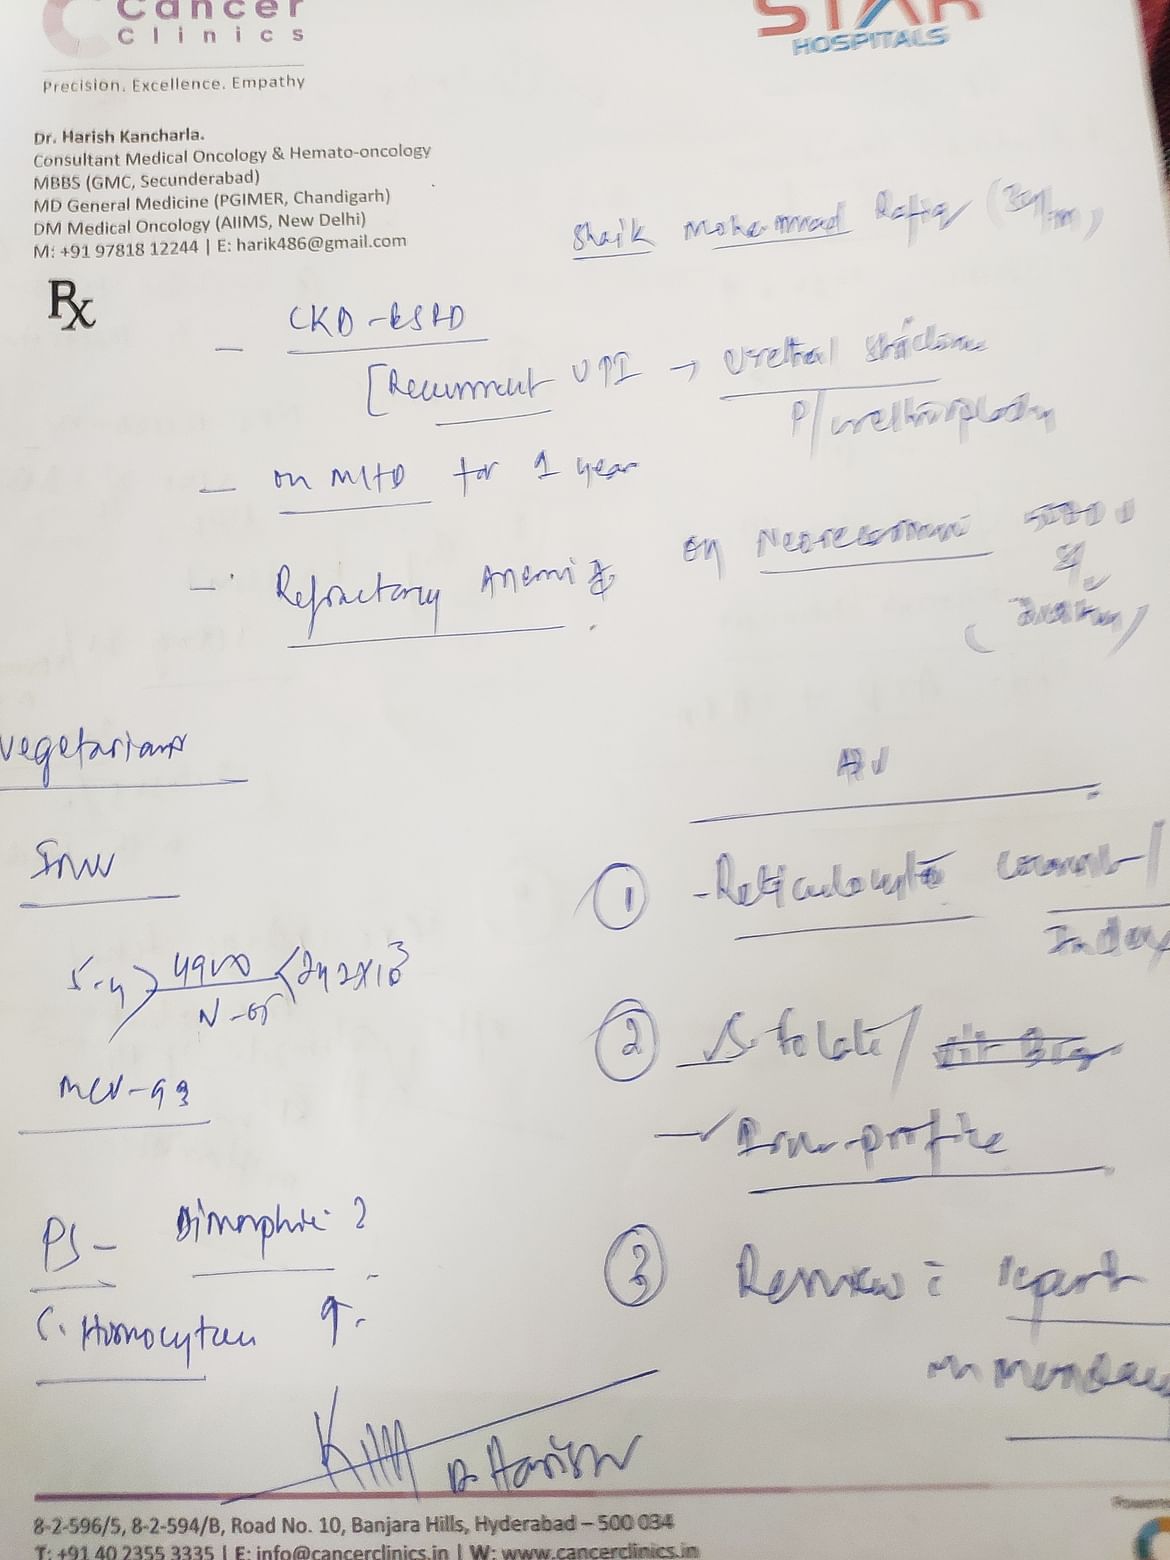 Cancer
Clinics
Precision. Excellence. Empathy
STAR
HOSPITALS
Dr. Harish Kancharla.
Consultant Medical Oncology & Hemato-oncology
MBBS (GMC, Secunderabad)
MD General Medicine (PGIMER, Chandigarh)
DM Medical Oncology (AIIMS, New Delhi)
M: +91 97818 12244 | E: harik486@gmail.com
Shaik Mohammad Rafiq
Rx
- CKD-ESRD
[Recurrent UTI → Urethral stricture
P/urethroplasty
- on MHD for 1 year
- Refractory Anemia on
Vegetarian
Inv
Adv
5.4 > 4900 < 242x10³
MCV-93
PS - Dimorphic ?
S. Homocysteine ↑.
① - Reticulocyte count/
Index
② S. folate/
- Iron profile
③ Review c̄ report
on Monday
Dr Harish
8-2-596/5, 8-2-594/B, Road No. 10, Banjara Hills, Hyderabad – 500 034
T: +91 40 2355 3335 | E: info@cancerclinics.in | W: www.cancerclinics.in
Powered